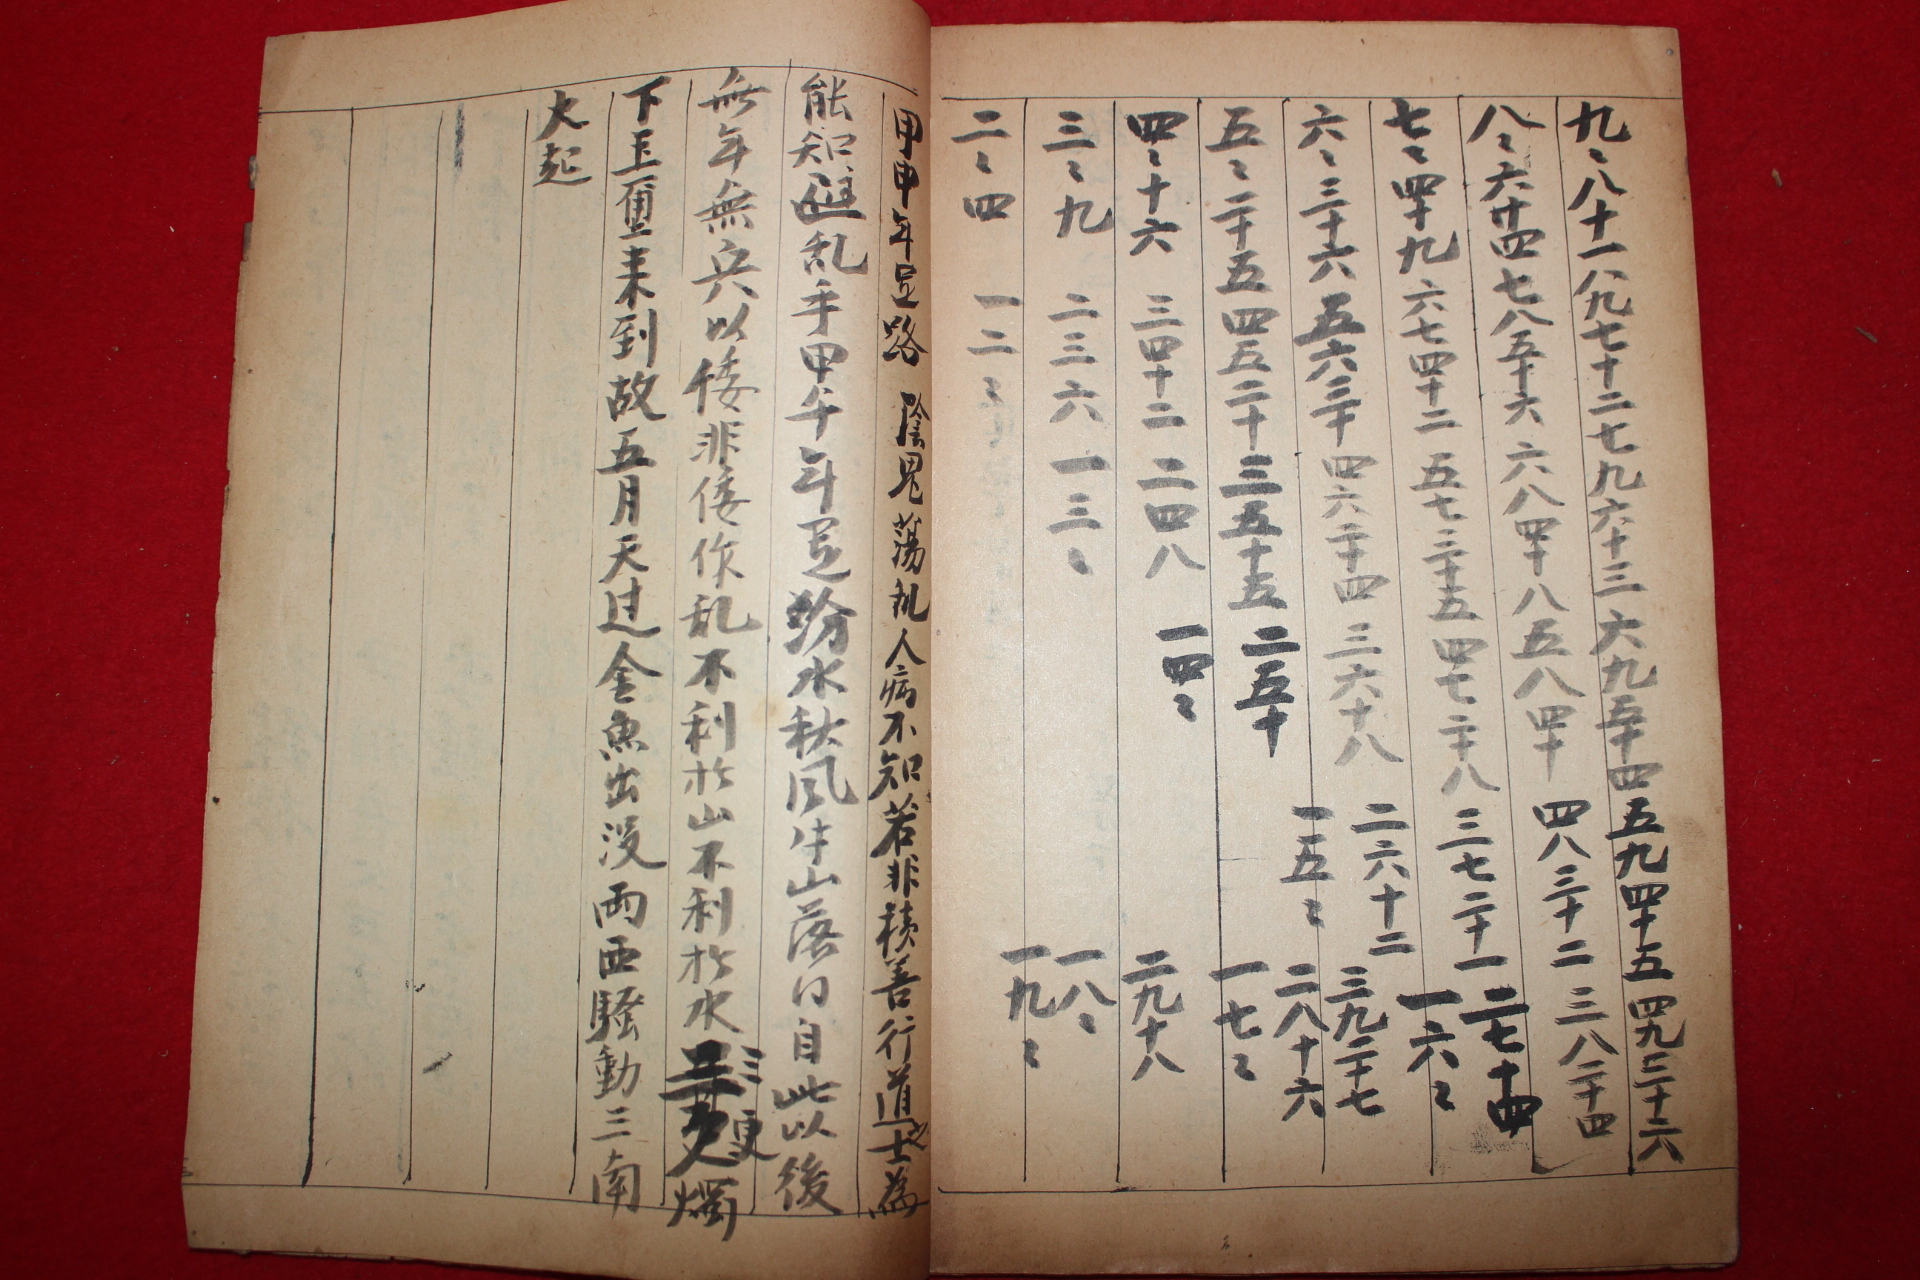 九〻八十一 八九七十二 七九六十三 六九五十四 五九四十五 四九三十六
八〻六十四 七八五十六 六八四十八 五八四十 四八三十二 三八二十四
七〻四十九 六七四十二 五七三十五 四七二十八 三七二十一 二七十四
六〻三十六 五六三十 四六二十四 三六十八 二六十二 一六〻
五〻二十五 四五二十 三五十五 二五十 一五〻 三九二十七
二八十六
一七〻
四〻十六 三四十二 二四八 一四〻 二九十八
三〻九 二三六 一三〻 一八〻
二〻四 一二〻 一九〻
甲申年是路 陰鬼蕩乱人病不知若非積善行道之士為
能知避乱乎甲午年是紛水秋風牛山落日自此以後
無年無兵以倭非倭作乱不利於山不利於水三更燭
下玉璽来到故五月天过金魚出没両西騒動三南
大起